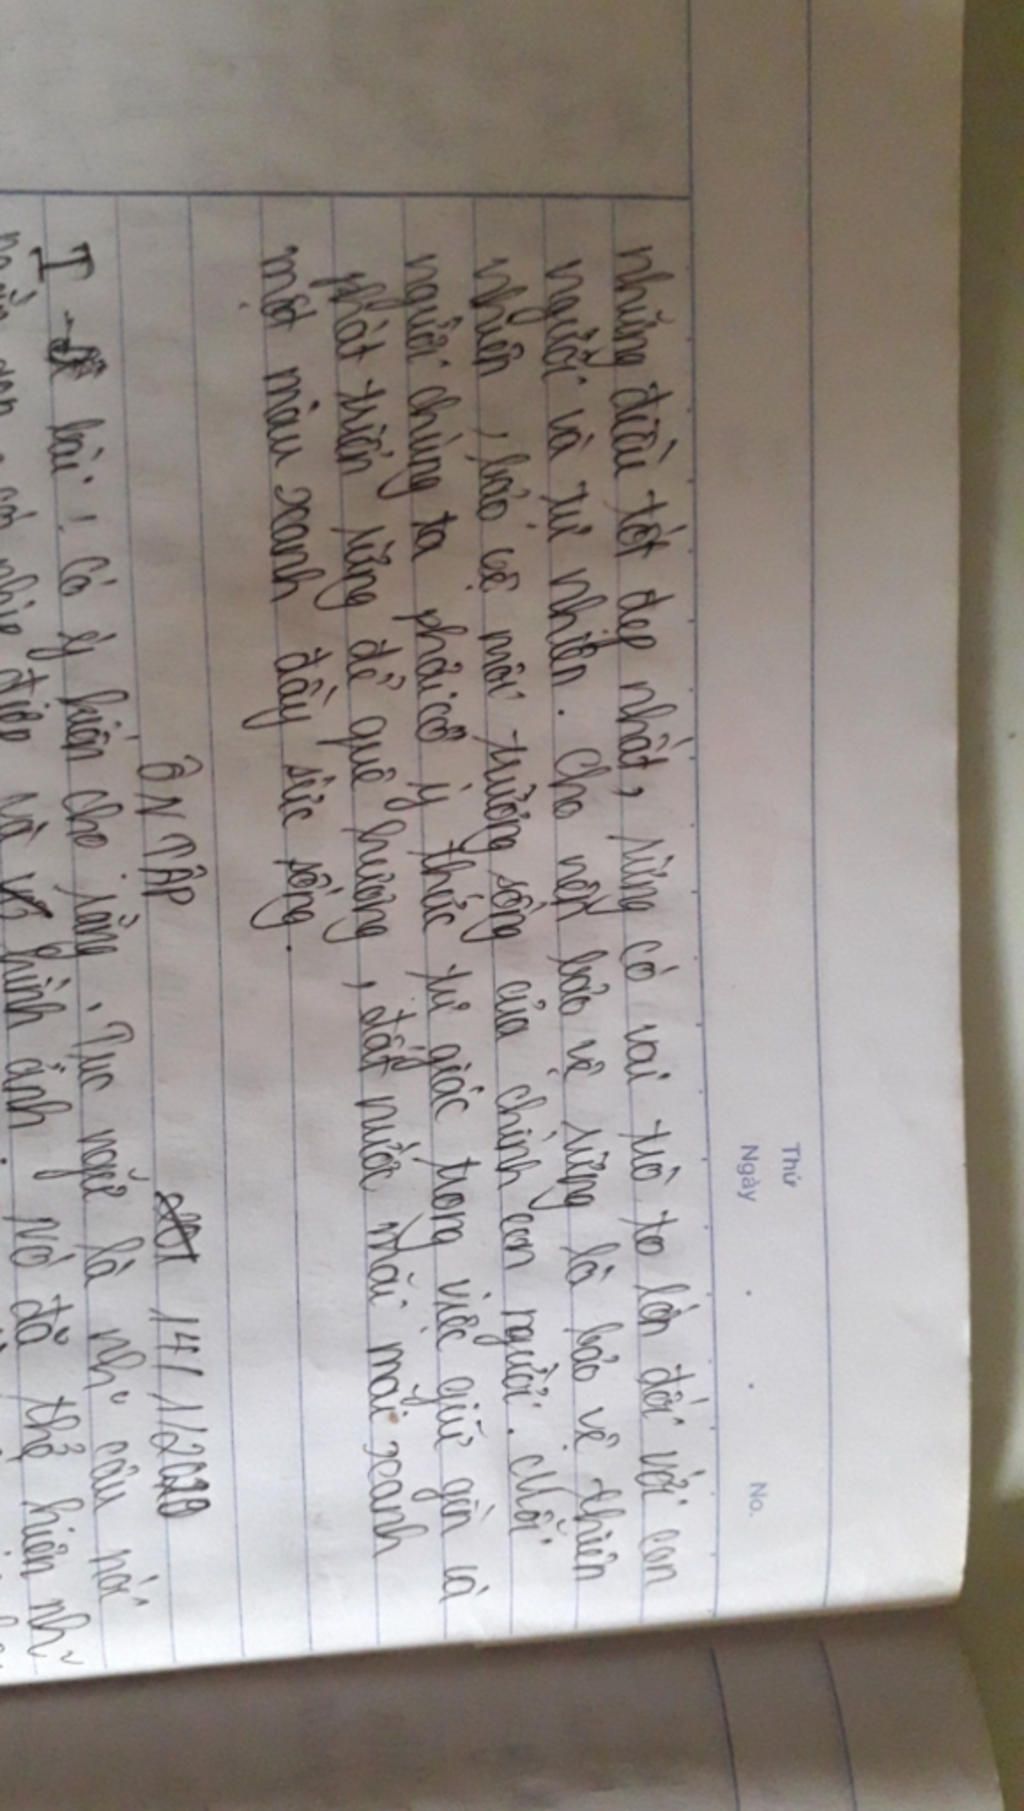 Thứ
Ngày . . No.
những điều tốt đẹp nhất, rừng có vai trò to lớn đối với con
người và tự nhiên. Cho nên bảo vệ rừng là bảo vệ thiên
nhiên, bảo vệ môi trường sống của chính con người. Mỗi
người chúng ta phải có ý thức tự giác trong việc giữ gìn và
phát triển rừng để quê hương, đất nước mãi mãi xanh
một màu xanh đầy sức sống.
ÔN TẬP 14/1/2020
I - bài, có ý kiến cho rằng. Tục ngữ là những câu nói
có nhịp điệu và hình ảnh. Nó đã thể hiện